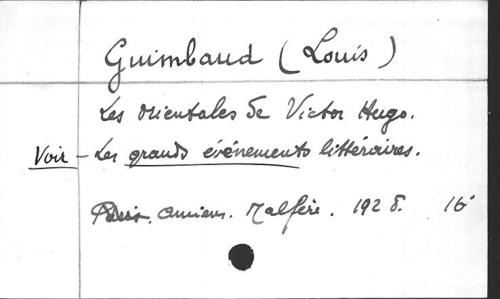 Guimbaud (Louis)
Les Orientales de Victor Hugo.
Voir - Les grands événements littéraires.
Paris, Amiens. Malfère. 1928. 16°